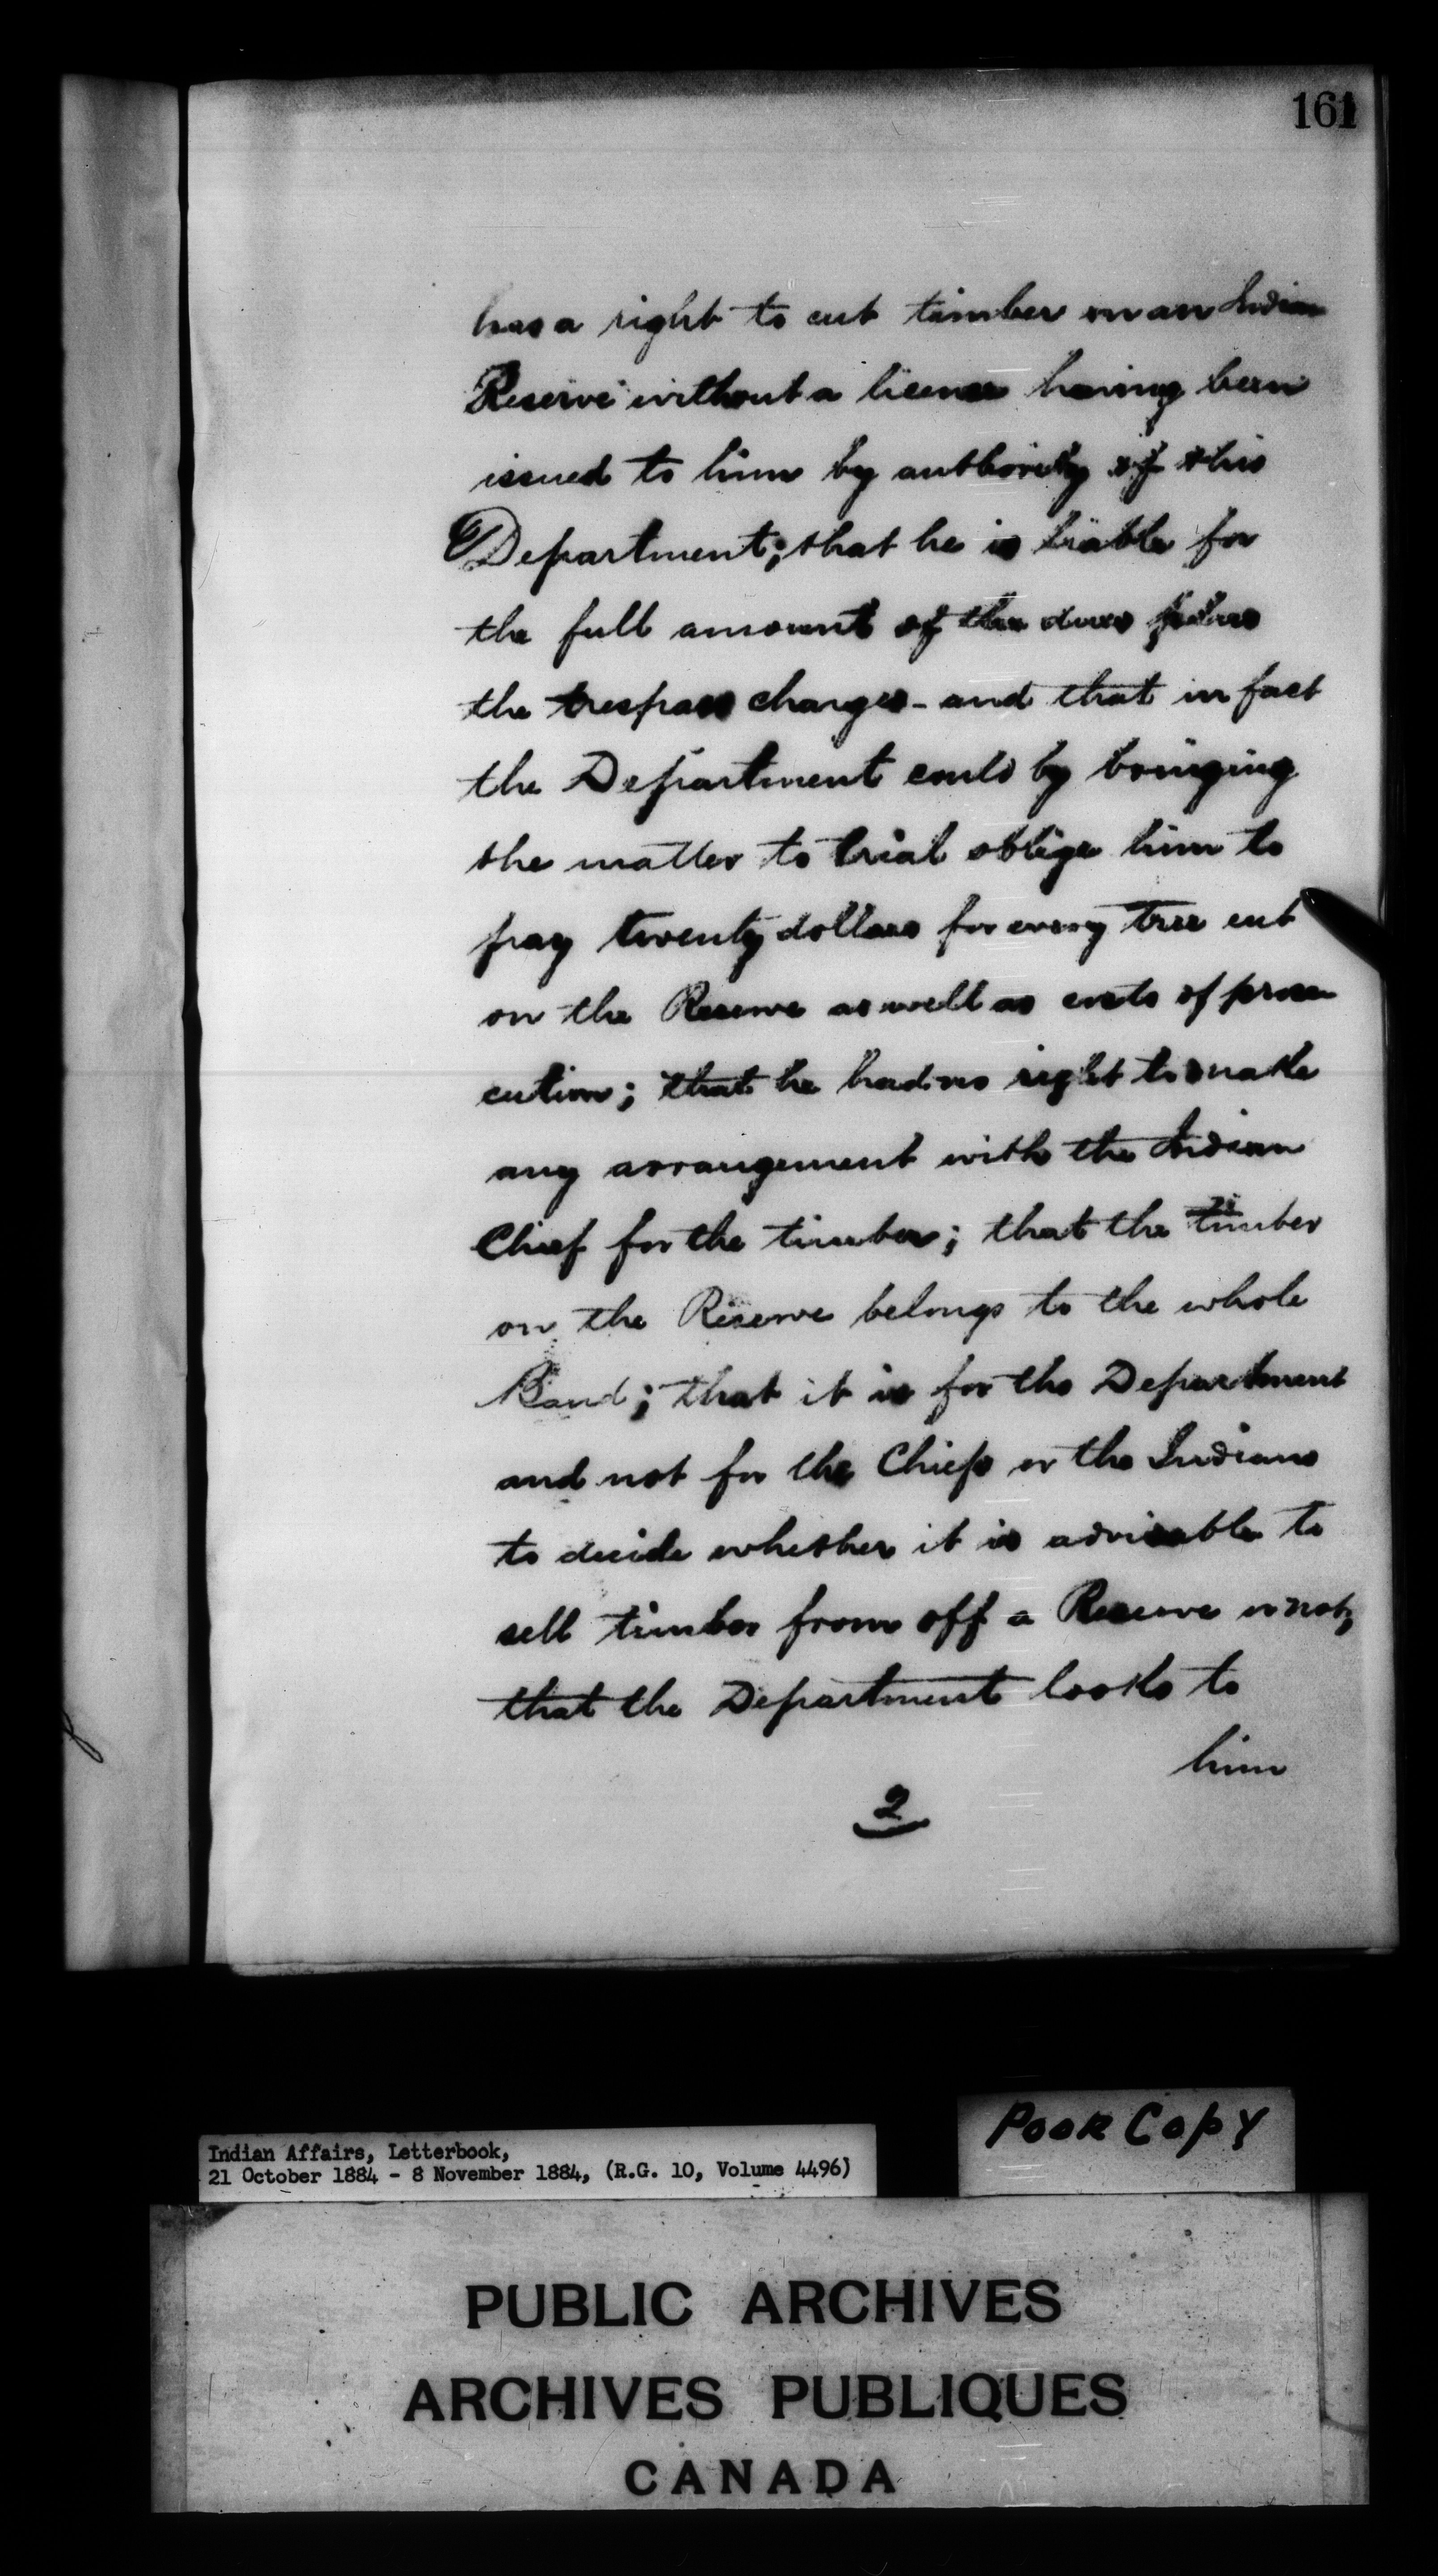 161
has a right to cut timber on an Indian
Reserve without a license having been
issued to him by authority of this
Department; that he is liable for
the full amount of the dues plus
the trespass charges - and that in fact
the Department could by bringing
the matter to trial oblige him to
pay twenty dollars for every tree cut
on the Reserve as well as costs of prose
cution; that he had no right to make
any arrangement with the Indian
Chief for the timber; that the timber
on the Reserve belongs to the whole
Band; that it is for the Department
and not for the Chiefs or the Indians
to decide whether it is advisable to
sell timber from off a Reserve or not;
that the Department looks to
him
2
Indian Affairs, Letterbook,
21 October 1884 - 8 November 1884, (R.G. 10, Volume 4496)
Poor Copy
PUBLIC ARCHIVES
ARCHIVES PUBLIQUES
CANADA